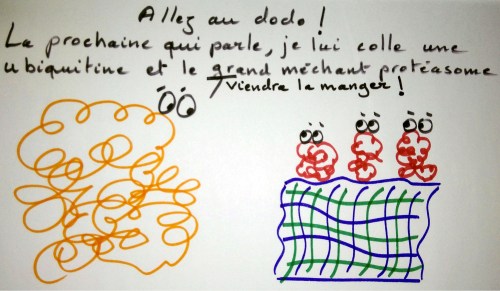 Allez au dodo !
La prochaine qui parle, je lui colle une
ubiquitine et le grand méchant protéasome
viendra la manger !